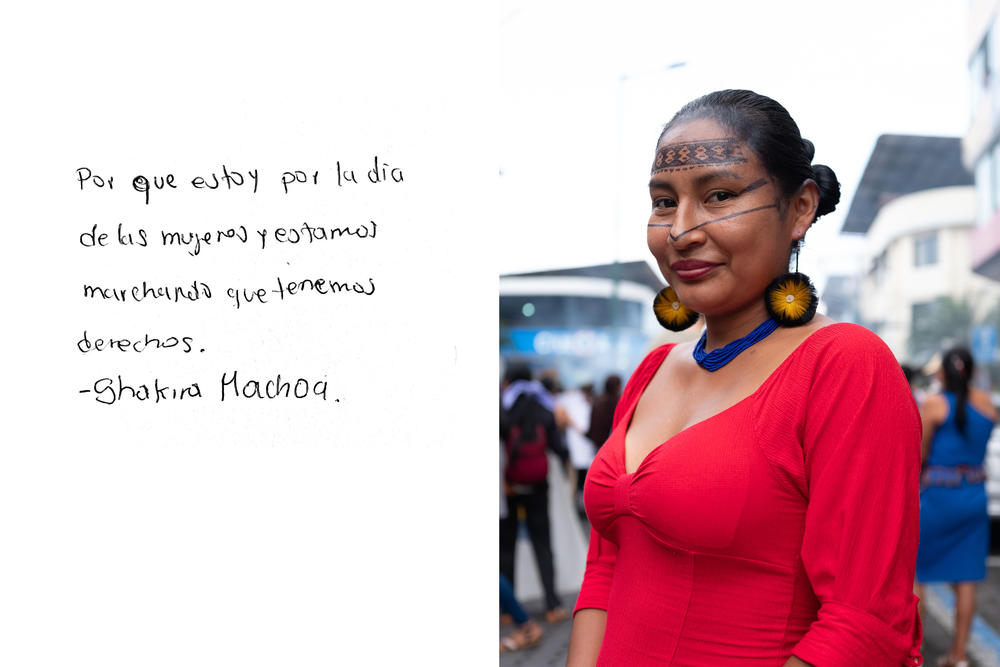 Por que estoy por la dia
de las mujeres y estamos
marchando que tenemos
derechos.
-Shakira Machoa.